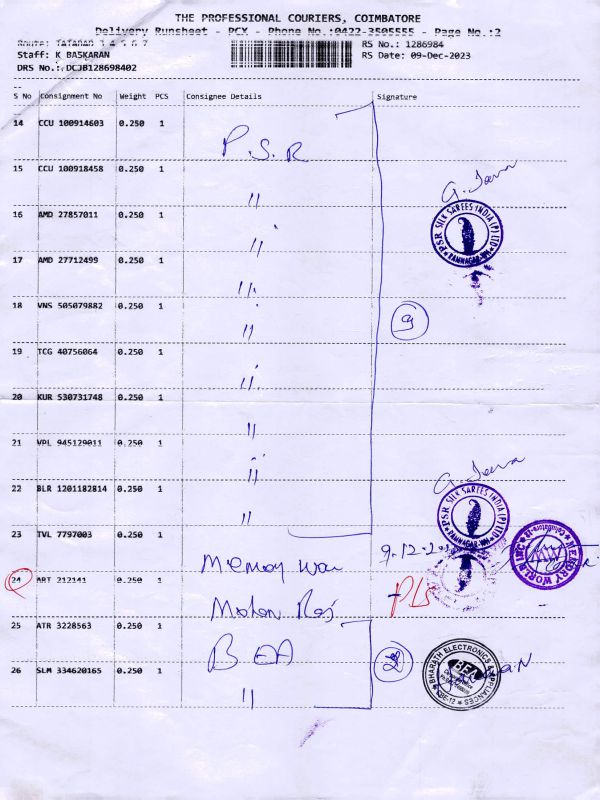 THE PROFESSIONAL COURIERS, COIMBATORE
Delivery Runsheet - PCX - Phone No.:0422-3505555 - Page No.:2
Route: RS No.: 1286984
Staff: K BASKARAN RS Date: 09-Dec-2023
DRS No.: DCJB128698402
S No Consignment No Weight PCS Consignee Details Signature
14 CCU 100914603 0.250 1 P.S.R
15 CCU 100918458 0.250 1 "
16 AMD 27857011 0.250 1 "
17 AMD 27712499 0.250 1 "
18 VNS 505079882 0.250 1 "
19 TCG 40756064 0.250 1 "
20 KUR 530731748 0.250 1 "
21 VPL 945129011 0.250 1 "
22 BLR 1201182814 0.250 1 "
23 TVL 7797003 0.250 1 Memory
24 ART 212141 0.250 1 Mohan Raj
25 ATR 3228563 0.250 1 BEA
26 SLM 334620165 0.250 1 "
PSR SILK SAREES INDIA (P) LTD
RAMNAGAR
9
PSR SILK SAREES INDIA (P) LTD
9.12.2
MEMORY WORLD INC
2
BHARATH ELECTRONICS & APPLIANCES
BEA
CBE-12